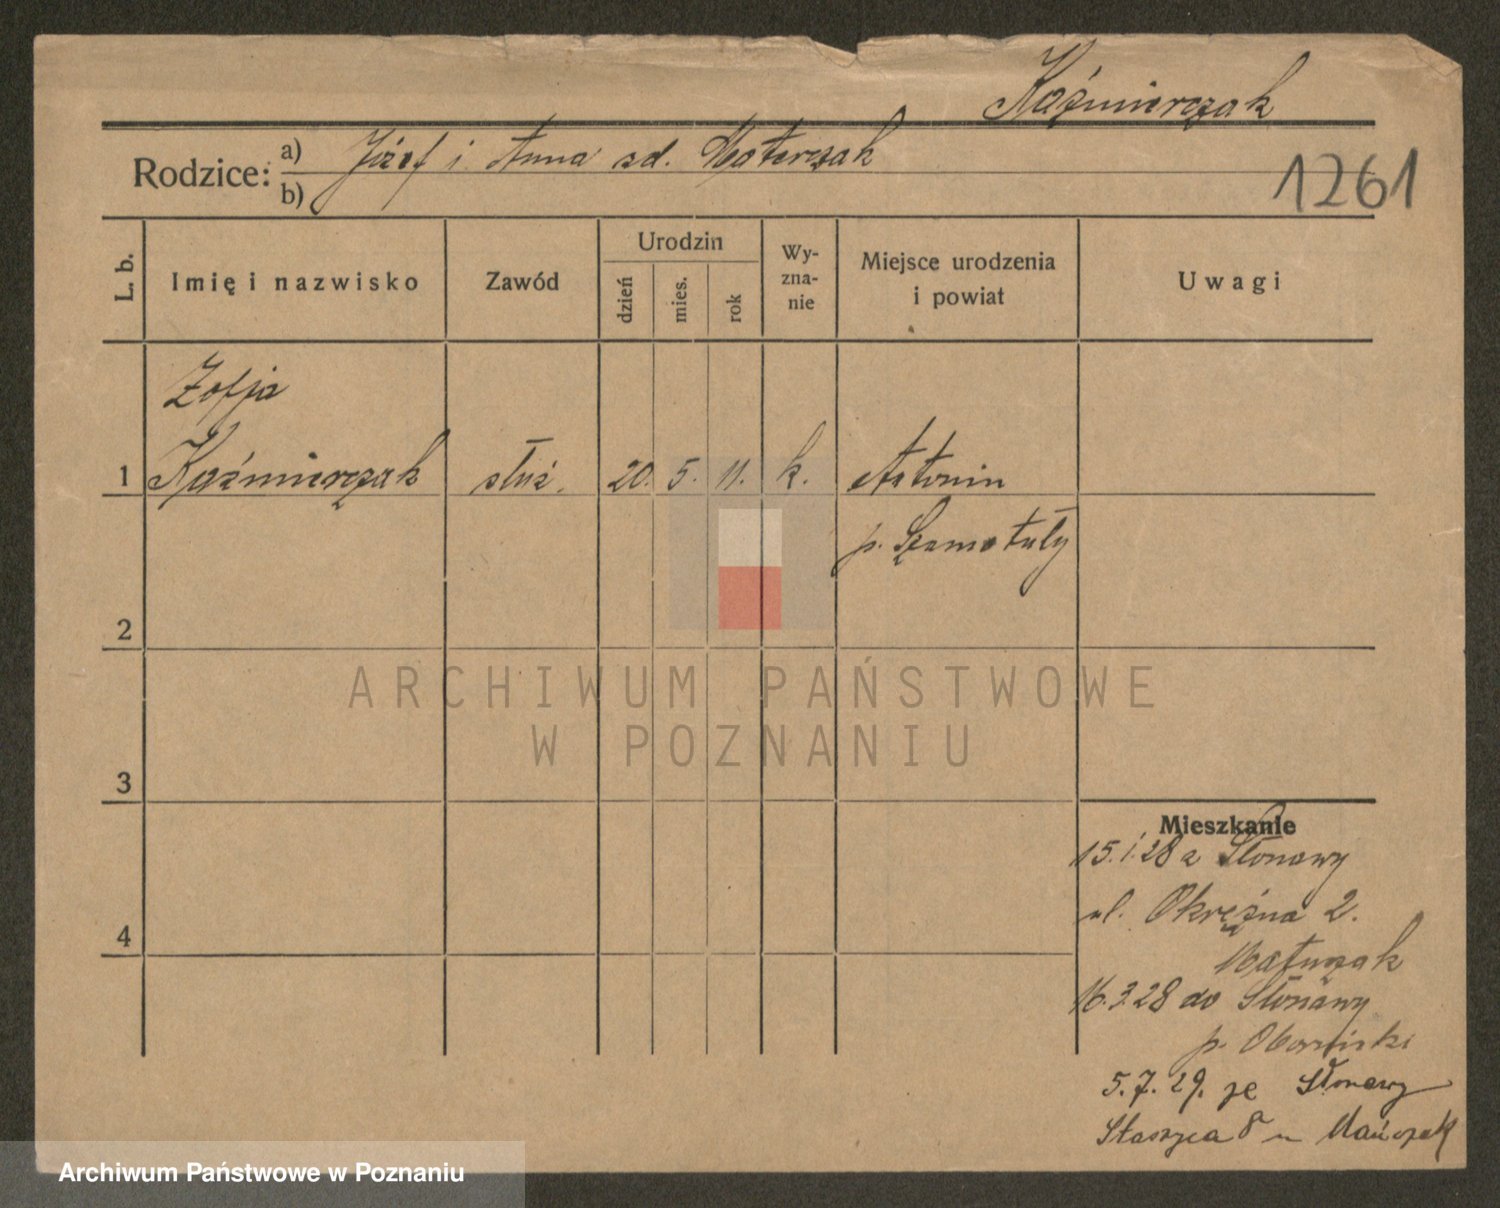 Kaźmierczak
Rodzice: a) Józef i Anna zd. Materczak
b)
1261
L. b.
Imię i nazwisko
Zawód
Urodzin
dzień
mies.
rok
Wy-
zna-
nie
Miejsce urodzenia
i powiat
Uwagi
Zofja
1 Kaźmierczak służ. 20. 5. 11. k. Antonin
p. Szamotuły
2
3
4
ARCHIWUM PAŃSTWOWE
W POZNANIU
Mieszkanie
15.1.28 z Słonawy
ul. Okrężna 2.
16.3.28 do Słonawy
p. Obornicki
5.7.29. ze Słonawy
Staszyca 8 u Mańczak
Archiwum Państwowe w Poznaniu